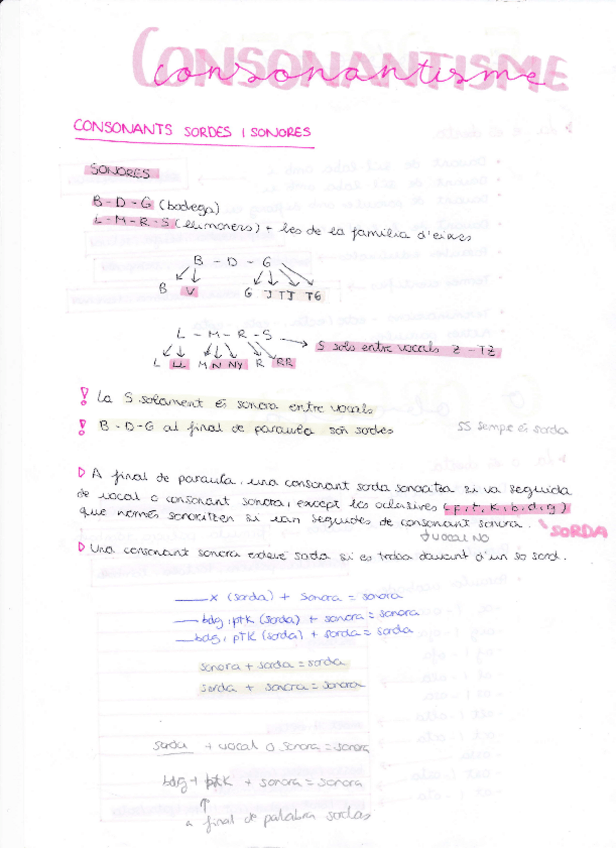 CONSONANTISME
consonantisme
CONSONANTS SORDES I SONORES
SONORES
B - D - G (bodega)
L - M - R - S (llimoners) + les de la família d'eixes
B - D - G
B V G J TJ TG
L - M - R - S
S sols entre vocals Z - TZ
L LL M N NY R RR
! La S solament és sonora entre vocals
! B - D - G al final de paraula són sordes
SS sempe és sorda
A final de paraula, una consonant sorda sonoritza si va seguida
de vocal o consonant sonora, except les oclusives (p, t, k, b, d, g)
que només sonoritzen si van seguides de consonant sonora.
SORDA
vocal NO
Una consonant sonora esdevé sorda si es troba davant d'un so sord.
x (sorda) + sonora = sonora
bdg, ptk (sorda) + sonora = sonora
bdg, pTK (sorda) + sorda = sorda
sonora + sorda = sorda
sorda + sonora = sonora
sorda + vocal o sonora = sonora
bdg + ptk + sonora = sonora
a final de palabra sordas